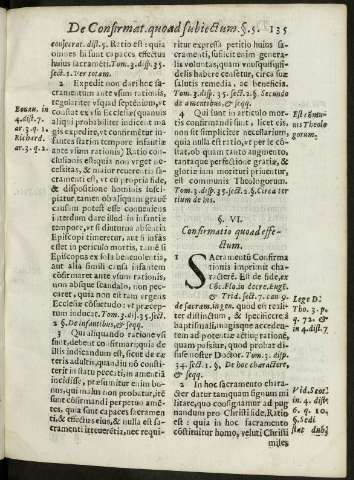 De Confirmat. quoad subiectum. §. 5. 135
conserat. dist. 5. Ratio est: quia
omnes hi sunt capaces effectus
huius sacramēti. Tom. 3. disp. 35.
sect. 1. Per totam.
2 Expedit non dari hoc sa-
cramentum ante vsum rationis,
regulariter vsque ad septeniū, vt
constat ex vsu Ecclesiæ (quamuis
aliqui probabiliter indicent ma-
gis expedire, vt confirmētur in-
fantes statim tempore infantiæ
ante vsum rationis) Ratio con-
clusionis est quia non vrget ne-
cessitas, & maior reuerentia sa-
cramenti est, vt cū propria fide,
& dispositione hominis susci-
piatur, tamen ob aliquam graue
causam potest esse conueniens
interdum dare illud in infantiæ
tempore, vt si diuturna absentia
Episcopi timeretur, aut si infās
esset in periculo mortis, tamē si
Episcopus ex sola beneuolentia,
aut alia simili causa infantem
confirmaret ante vsum rationis,
non absque scandalo, non pec-
caret, quia non est tam vrgens
Ecclesiæ cōsuetudo vt præcep-
tum inducat. Tom. 3. disp. 35. sect.
2. §. De infantibus, & seqq.
3 Qui aliquando ratione vsi
sunt, debent confirmari; quia de
illis iudicandum est, sicut de ex-
teris adultis, quando si nō consti-
terit in statu peccati, in amentiā
incidisse, præsumitur enim bo-
nus, qui malus non probatur, itē
sunt cōfirmandi perpetuo amē-
tes, quia sunt capaces sacramen
ti, & effectus eius, & nulla est sa-
cramenti irreuerētia, nec requi-
Bonau. in
4. dist. 7.
ar. 3. q. 1.
Richard.
ar. 3. q. 2.
ritur expressa petitio huius sa-
cramenti, sufficit enim genera-
lis voluntas, quam vnusquisque fi-
delis habere censetur, circa suæ
salutis remedia, ac beneficia.
Tom. 3. disp. 35. sect. 2. §. Secundo
de amentibus, & seqq.
4 Qui sunt in articulo mor-
tis confirmandi sunt: licet vis.
non sit simpliciter necessarium,
quia nulla est ratio, vt per se cō-
stat ob quam tanto augmento,
tantaque perfectione gratiæ, &
gloriæ inuiti moriantur, priuentur,
est communis Theologorum.
Tom. 3. disp. 35. sect. 2. §. Circa ter
tium de his.
Est cōmu-
nis Theolo
gorum.
§. VI.
Confirmatio quoad effe-
ctum.
1 Sacramentū Confirma
tionis imprimit cha-
racterē. Est de fide, ex
Cōc. Flo. in decre. Eugē.
& Trid. sess. 7. can. 9.
de sacram. in gen. quod est realiter
distinctum, & specificum, à
baptismali, magisque acceden-
dum ad potentiæ actiuę rationē,
quam passiuę, quod probat di-
fuse noster Doctor. Tom. 3. disp.
34. sect. 1. §. De hoc charactere,
& seqq.
2 In hoc sacramento charac-
ter datur tamquam signum mi
litare, quo consignamur ad pug
nandum pro Christi fide. Ratio
est: quia in hoc sacramento
cōstituitur homo, veluti Christi
miles
Lege D.
Tho. 3. p.
q. 72. &
in 4. dist. 7
Vid. Scot.
in. 4. dist.
6. q. 10.
§. Sedi
stat dub.